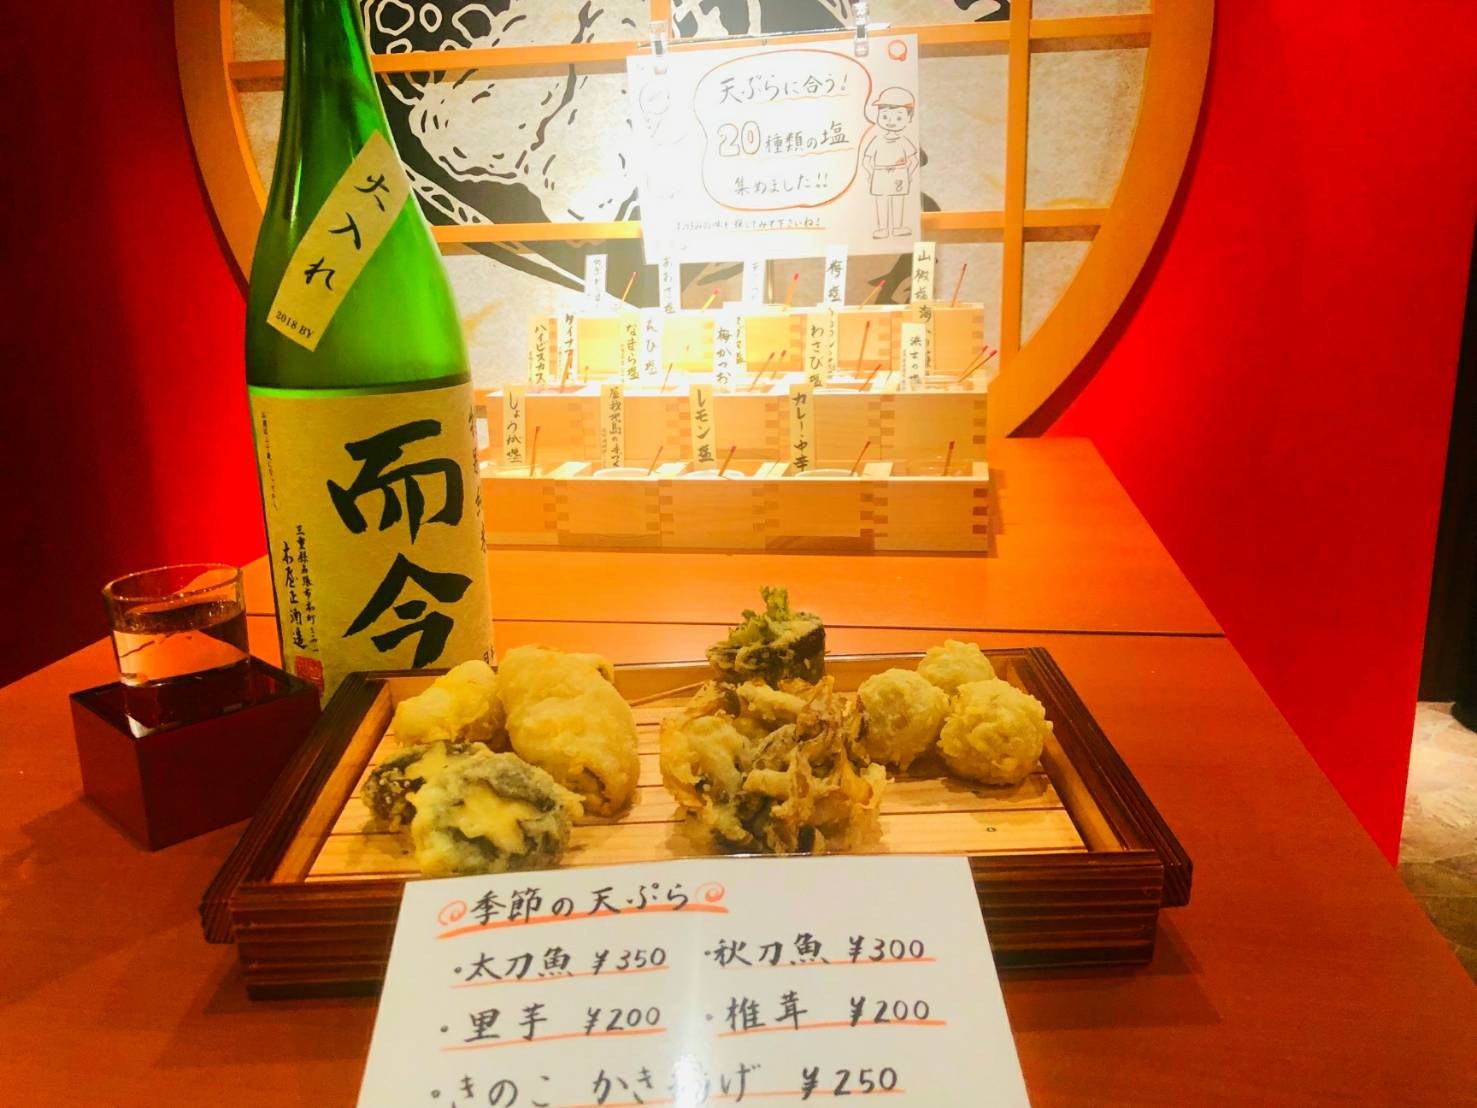 天ぷらに合う!
20種類の塩
集めました!!
火入れ
2018 BY
而今
三重県名張市本町
木屋正酒造
梅塩
山椒塩
ハイビスカス
なまら塩
梅かつお
わさび塩
しょうが塩
レモン塩
カレー・中辛
季節の天ぷら
・太刀魚 ¥350 ・秋刀魚 ¥300
・里芋 ¥200 ・椎茸 ¥200
・きのこ かき揚げ ¥250